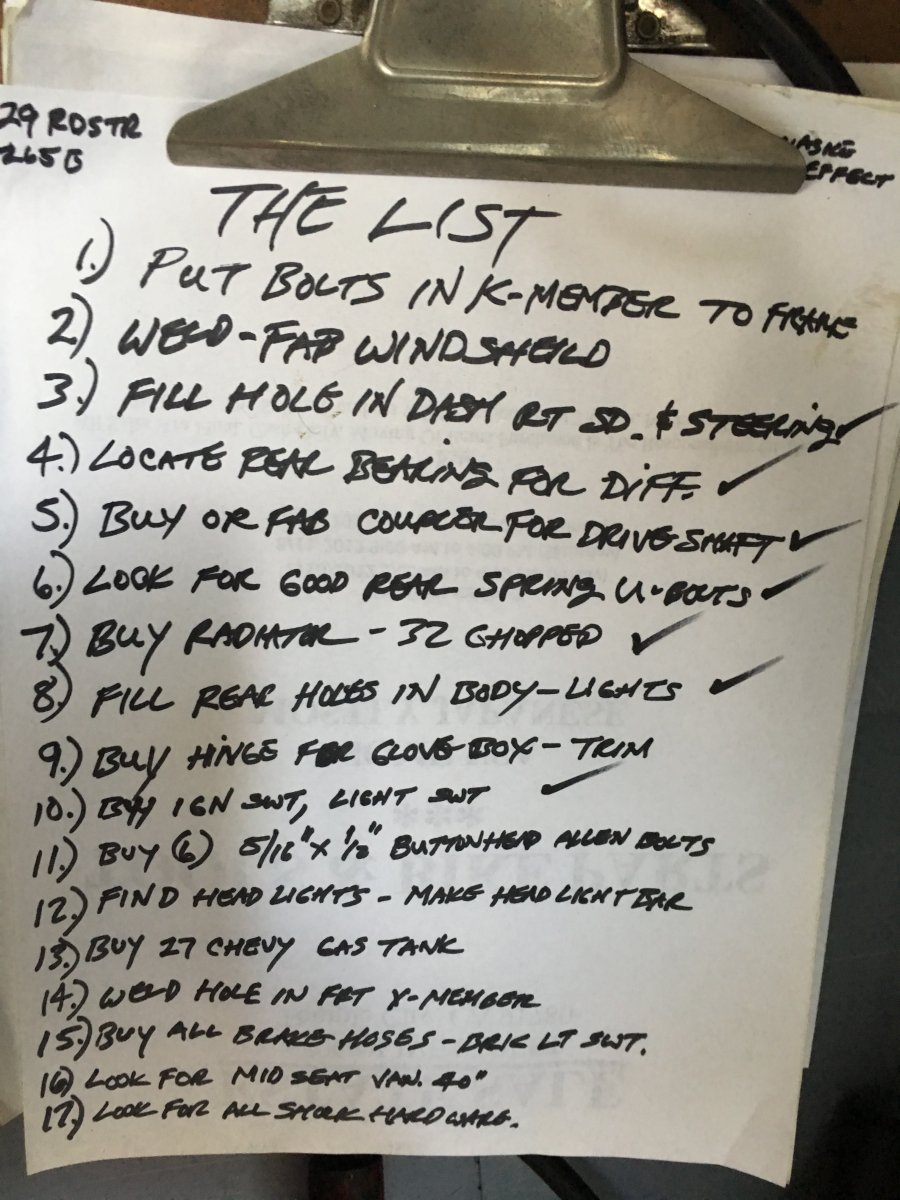 29 RDSTR
265 B
EFFECT
THE LIST
1.) PUT BOLTS IN K-MEMBER TO FRAME
2.) WELD-FAB WINDSHEILD
3.) FILL HOLE IN DASH RT SD. & STEERING ✓
4.) LOCATE REAR BEARING FOR DIFF. ✓
5.) BUY OR FAB COUPLER FOR DRIVE SHAFT ✓
6.) LOOK FOR GOOD REAR SPRING U-BOLTS ✓
7.) BUY RADIATOR - 32 CHOPPED ✓
8.) FILL REAR HOLES IN BODY - LIGHTS ✓
9.) BUY HINGE FOR GLOVE BOX - TRIM
10.) BUY IGN SWT, LIGHT SWT ✓
11.) BUY (6) 5/16" X 1/2" BUTTONHEAD ALLEN BOLTS
12.) FIND HEAD LIGHTS - MAKE HEAD LIGHT BAR
13.) BUY 27 CHEVY GAS TANK
14.) WELD HOLE IN FRT X-MEMBER
15.) BUY ALL BRAKE HOSES - BRK LT SWT.
16) LOOK FOR MID SEAT VAN. 40"
17.) LOOK FOR ALL SHOCK HARDWARE.